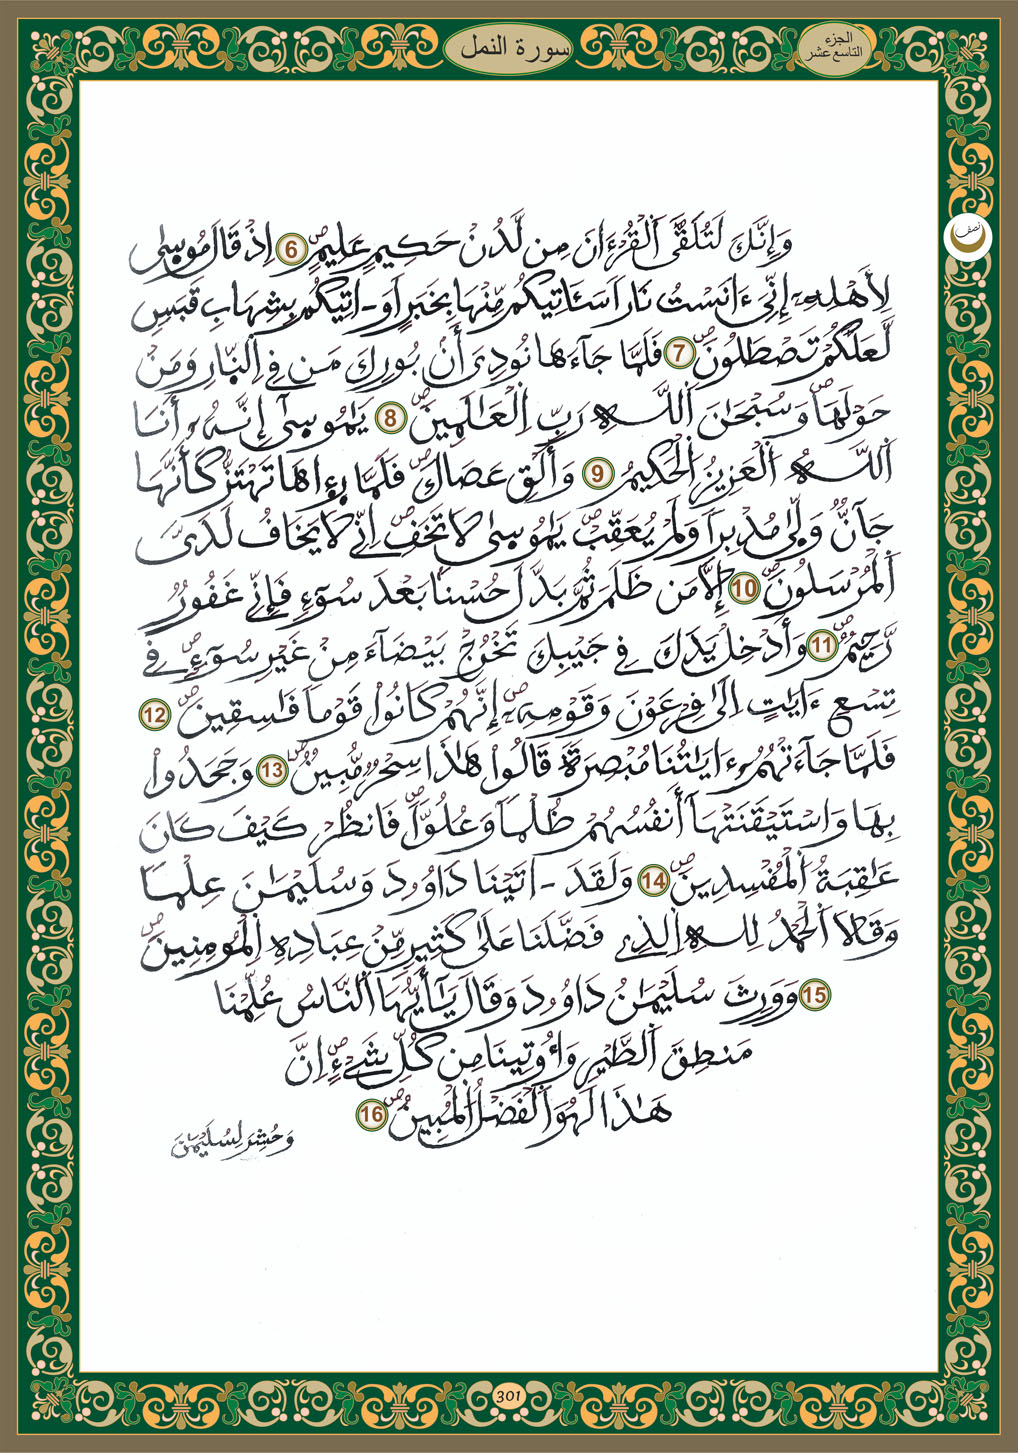 سورة النمل
الجزء
التاسع عشر
نصف
وَإِنَّكَ لَتُلَقَّى اَلْقُرْءَانَ مِن لَّدُنْ حَكِيمٍ عَلِيمٍ 6 اِذْ قَالَ مُوسَى
لِأَهْلِهِۦ إِنِّيَ ءَانَسْتُ نَاراً سَـَٔاتِيكُم مِّنْهَا بِخَبَرٍ اَوَ اتِيكُم بِشِهَابِ قَبَسٍ
لَّعَلَّكُمْ تَصْطَلُونَ 7 فَلَمَّا جَآءَهَا نُودِيَ أَنۢ بُورِكَ مَن فِي اِلنَّارِ وَمَنْ
حَوْلَهَا وَسُبْحَانَ اَللَّهِ رَبِّ اِلْعَالَمِينَ 8 يَامُوسَىٰ إِنَّهُۥ أَنَا
اَللَّهُ اُلْعَزِيزُ اُلْحَكِيمُ 9 وَأَلْقِ عَصَاكَ فَلَمَّا رِءاهَا تَهْتَزُّ كَأَنَّهَا
جَآنٌّ وَلَّىٰ مُدْبِراً وَلَمْ يُعَقِّبْ يَامُوسَىٰ لَا تَخَفِ اِنِّي لَا يَخَافُ لَدَيَّ
اَلْمُرْسَلُونَ 10 إِلَّا مَن ظَلَمَ ثُمَّ بَدَّلَ حُسْناً بَعْدَ سُوٓءٍ فَإِنِّي غَفُورٌ
رَّحِيمٌ 11 وَأَدْخِلْ يَدَكَ فِي جَيْبِكَ تَخْرُجْ بَيْضَآءَ مِنْ غَيْرِ سُوٓءٍ فِي
تِسْعِ ءَايَاتٍ اِلَىٰ فِرْعَوْنَ وَقَوْمِهِۦ إِنَّهُمْ كَانُوا قَوْماً فَاسِقِينَ 12
فَلَمَّا جَآءَتْهُمُۥ ءَايَاتُنَا مُبْصِرَةً قَالُوا هَاذَا سِحْرٌ مُّبِينٌ 13 وَجَحَدُوا
بِهَا وَاسْتَيْقَنَتْهَآ أَنفُسُهُمْ ظُلْماً وَعُلُوّاً فَانظُرْ كَيْفَ كَانَ
عَاقِبَةُ اُلْمُفْسِدِينَ 14 وَلَقَدَ اتَيْنَا دَاوُۥدَ وَسُلَيْمَانَ عِلْماً
وَقَالَا اَلْحَمْدُ لِلهِ اِلذِي فَضَّلَنَا عَلَىٰ كَثِيرٍ مِّنْ عِبَادِهِ اِلْمُومِنِينَ
15 وَوَرِثَ سُلَيْمَانُ دَاوُۥدَ وَقَالَ يَآأَيُّهَا اَلنَّاسُ عُلِّمْنَا
مَنطِقَ اَلطَّيْرِ وَأُوتِينَا مِن كُلِّ شَيْءٍ اِنَّ
هَاذَا لَهُوَ اَلْفَضْلُ اُلْمُبِينُ 16
وَحُشِرَ لِسُلَيْمَانَ
301